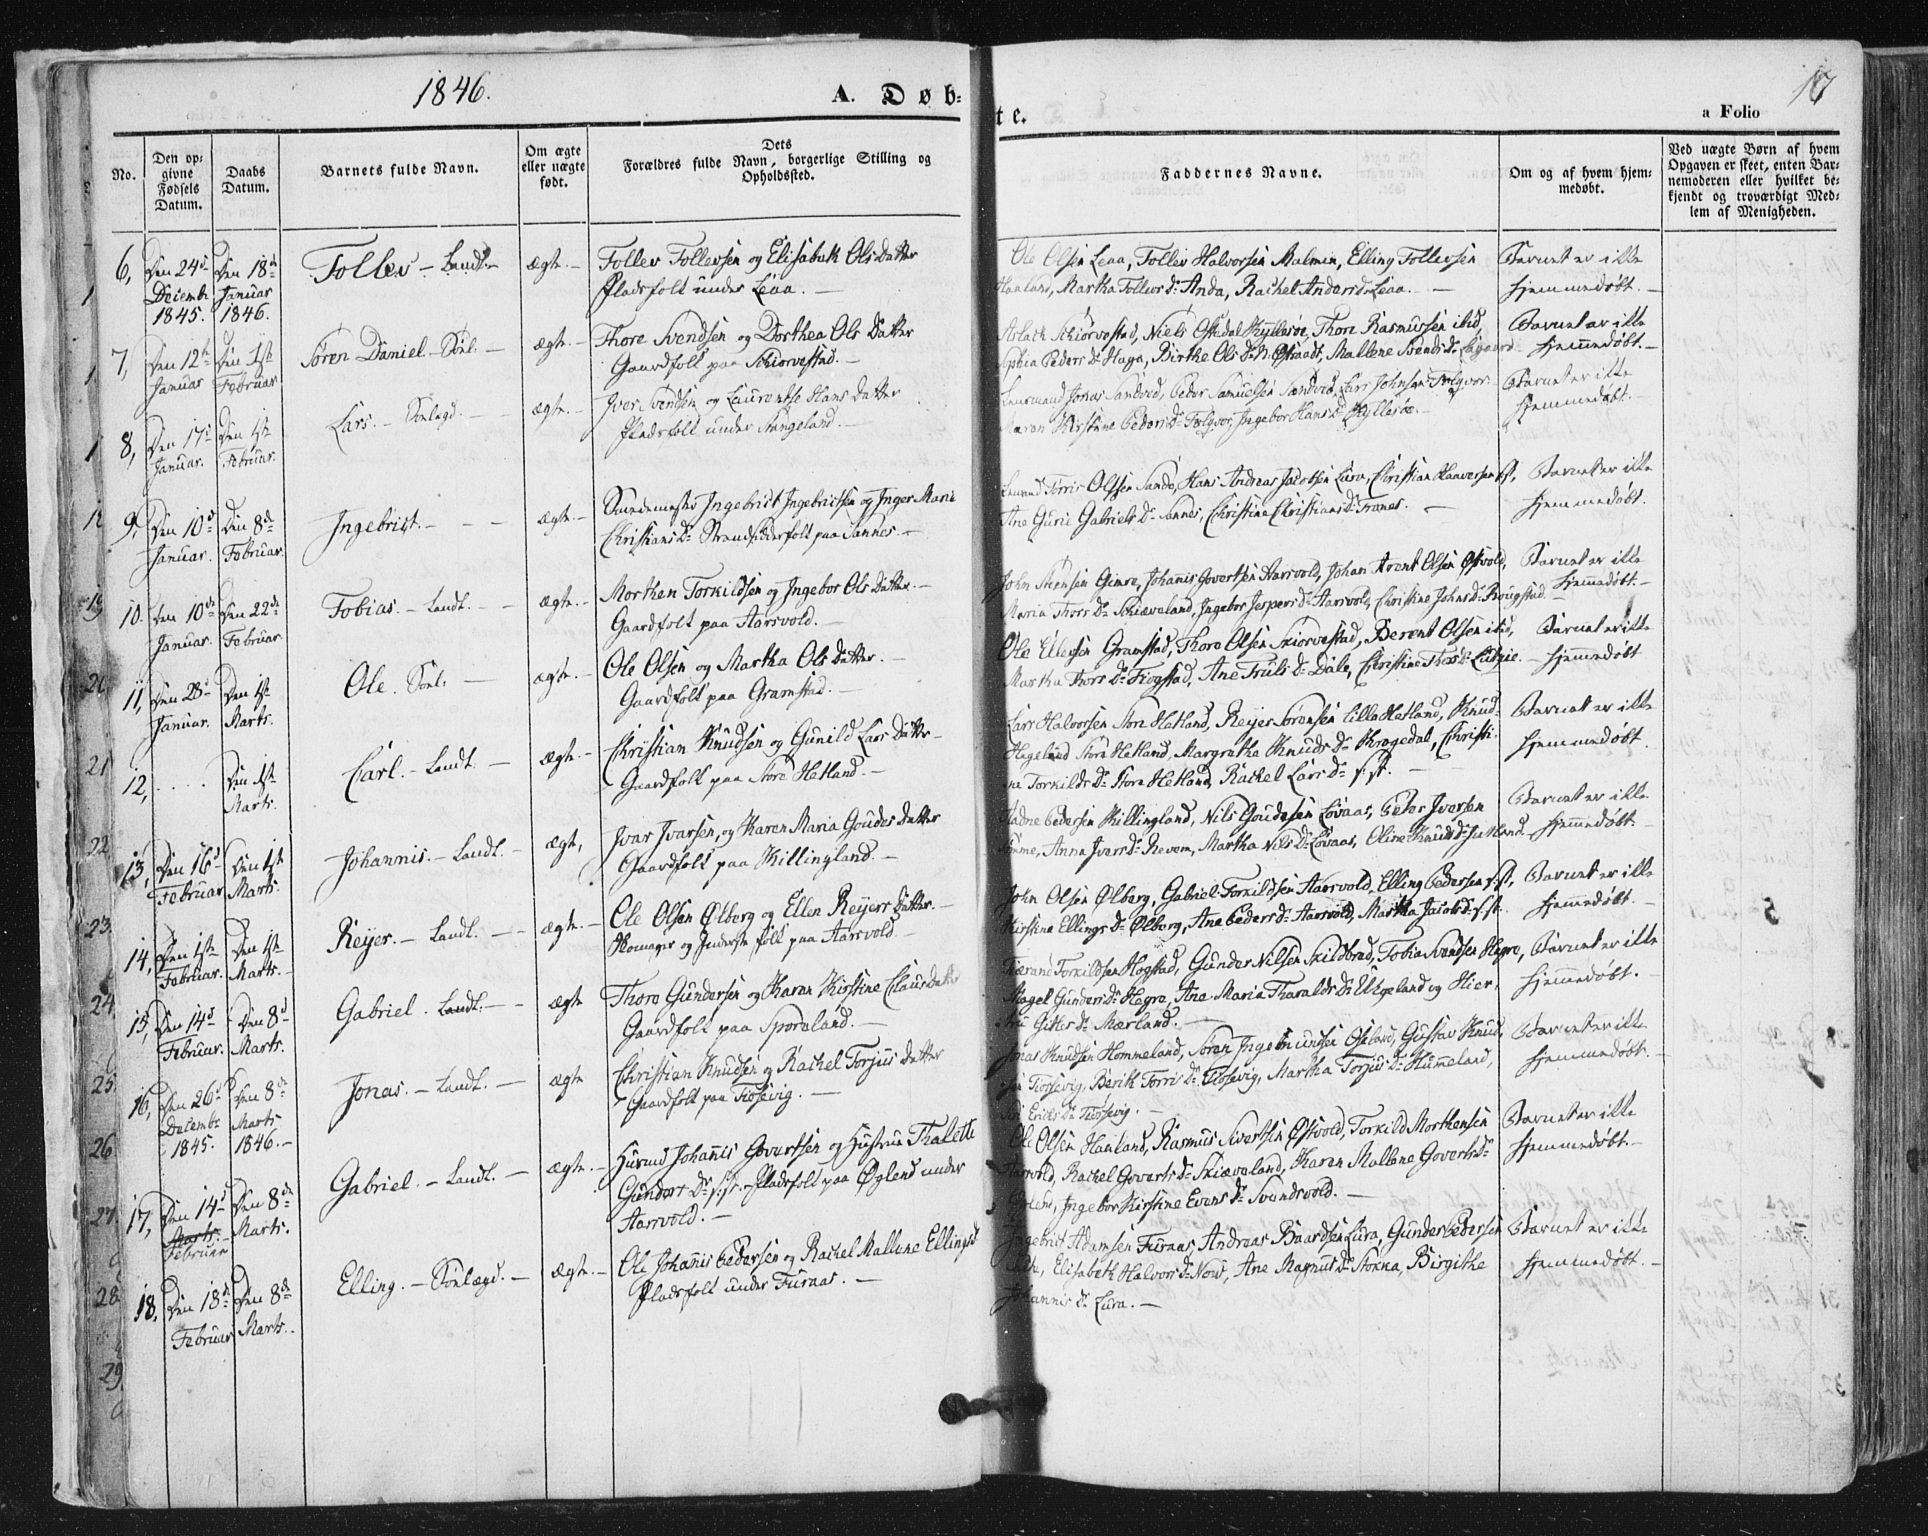 1846.
A. Døb=
te.
17
a Folio
No.
Den op=
givne
Fødsels
Datum.
Daabs
Datum.
Barnets fulde Navn.
Om ægte
eller uægte
født.
Dets
Forældres fulde Navn, borgerlige Stilling og
Opholdssted.
Faddernes Navne.
Om og af hvem hjem=
medøbt.
Ved uægte Børn af hvem
Opgaven er skeet, enten Bar=
nemoderen eller hvilket be=
kjendt og troværdigt Med=
lem af Menigheden.
6, Den 24de Den 18de Tollev – Landt. – ægte. – Tollev Tollevsen og Elisabeth Ols Datter
Decembr Januar Pladsfolk under Leaa. –
1845. 1846.
Ole Olsen Leaa, Tollev Halvorsen Malmin, Elling Tollevsen
Haaland, Martha Tollevs Dr Anda, Rachel Anders Dr Leaa. –
Barnet er ikke
hjemmedøbt. –
7, Den 12te Den 1ste Søren Daniel – Sønl. – ægte. – Thore Svendsen og Dorthea Ols Datter
Januar Februar Gaardfolk paa Skiørvestad. –
Aslak Skiørvestad, Niels Østedal Kyllesøe, Thore Rasmussen ibid,
Sophia Peders Dr Haga, Birthe Ols Dr N. Ostraadt, Mallene Svends Dr
Barnet er ikke
hjemmedøbt. –
8, Den 17de Den 1ste Lars. – Sønlagd. – ægte. – Iver Svendsen og Laurentse Hans Datter
Januar. Februar. Pladsfolk under Stangeland. –
Lensmand Jonas Sandved, Peder Samuelsen Sandved, Lars Johnsen Folgvor.
Maren Kirstine Peders Dr Folgvor, Ingebor Hans Dr Kyllesøe. –
Barnet er ikke
hjemmedøbt. –
9, Den 10de Den 8de Ingebrigt. – – – ægte – Smedemester Ingebrigt Ingebrigtsen og Inger Marie
Januar. Februar. Christians Dr Strandsidderfolk paa Sannes. –
Torris Olssen Sande, Hans Andreas Jacobsen Lura, Christian Haaversen s:st,
Ane Gurie Gabriels Dr Sannes, Christine Christians Dr Tranes. –
Barnet er ikke
hjemmedøbt.
10. Den 10de Den 22de Tobias. – Landt. – – ægte. – Morthen Torkildsen og Ingebor Ols Datter. –
Januar Februar Gaardfolk paa Aarsvold. –
John Steensen Gimre, Johannis Govertsen Aarsvold, Johan Arent Olsen Østvold,
Maria Thors Dr Skiæveland, Ingebor Jespers Dr Aarsvold, Christine Johns Dr Rougstad –
Barnet er ikke
hjemmedøbt. –
11, Den 28de Den 1ste Ole. Sønl. – ægte. – Ole Olsen og Martha Ols Datter. –
Januar. Marts. Gaardfolk paa Gramstad. –
Ole Ellevsen Gramstad, Thore Olsen Skiorvestad, Berent Olsen ibid,
Martha Thors Dr Frøgstad, Ane Truls Dr Dale, Christine Thors Dr Lutsie. –
Barnet er ikke
hjemmedøbt
12, . . . . Den 1ste Carl. – Landt. – ægte. – Christian Knudsen og Gunild Lars Datter –
Marts. Gaardfolk paa Store Hetland. –
Lars Halvorsen Store Hetland, Reyer Sørensen Lille Hetland, Knud
Hegeland Store Hetland, Margretha Knuds Dr Krogedal, Christi-
ne Torkilds Dr Store Hetland, Rachel Lars Dr s:st. –
Barnet er ikke
hjemmedøbt.
13, Den 16de Den 1ste Johannis. – Landt. – ægte, Ivar Ivarsen, og Karen Maria Goudes Datter
Februar Marts. Gaardfolk paa Killingland. –
Hadne Pedersen Killingland, Nils Goudesen Lovaas, Peder Iversen
Somme, Anna Ivers Dr Revem, Martha Nils Dr Lovaas, Oline Knuds Dr Jutland.
Barnet er ikke
hjemmedøbt. –
14, Den 1ste Den 1ste Reyer. – Landt. – – ægte. – Ole Olsen Ølberg og Ellen Reyers Datter. –
Februar. Marts. – Homager og Inderste folk paa Aarsvold –
John Olsen Ølberg, Gabriel Torkildsen Aarsvold, Elling Pedersen s:st,
Kirstine Ellings Dr Ølberg, Ane Peders Dr Aarsvold, Martha Jacobs Dr s:st.
Barnet er ikke
hjemmedøbt. –
15, Den 14de Den 8de Gabriel. Landt. – ægte Thore Gundersen og Karen Kirstine Claus Datter
Februar. Marts. Gaardfolk paa Sporaland. –
Torkildsen Hogstad, Gunder Nilsen Skildbred, Tobias Svendsen Hegre,
Magel Gunders Dr Hegre, Ane Maria Tharalds Dr Elkgeland og Hier,
Gitles Dr Mærland. –
Barnet er ikke
hjemmedøbt.
16, Den 26de Den 8de Jonas. – Landt. – ægte Christian Knudsen og Rachel Torjus Datter
Decembr Marts Gaardfolk paa Tiøsevig. –
1845. 1846. –
Jonas Knudsen Hommeland, Søren Ingebmundsen Oseland, Gustav Knud,
sen Tiøsevig, Berith Torris Dr Tiøsevig, Martha Torjus Dr Hummeland,
Eriks Dr Tiøsevig. –
Barnet er ikke
hjemmedøbt. –
17, Den 14de Den 8de Gabriel. – Landt. – ægte. – Huusmd Johannis Govertsen og Hustrue Thalette
Marts. Marts. Gunders Dr s:st. – Pladsfolk paa Øglend under
Februar Aarsvold. –
Ole Olsen Haaland, Rasmus Sivertsen Østvold, Torkild Morthensen
Aarsvold, Rachel Goverts Dr Skiæveland, Karen Mallene Goverts Dr
Ingebor Kirstine Evens Dr Svendsvold. –
Barnet er ikke
hjemmedøbt. –
18, Den 18de Den 8de Elling. – Sønlagd. – ægte. – Ole Johannis Pedersen og Rachel Mallene Ellings Dr
Februar Marts. Pladsfolk under Furaas. –
Ingebrigt Adamsen Furaas, Andreas Baardsen Lura, Gunder Pedersen
Elisabeth Halvors Dr Nous, Ane Magnus Dr Stokka, Birgithe
Johannis Dr Lura. –
Barnet er ikke
hjemmedøbt. –